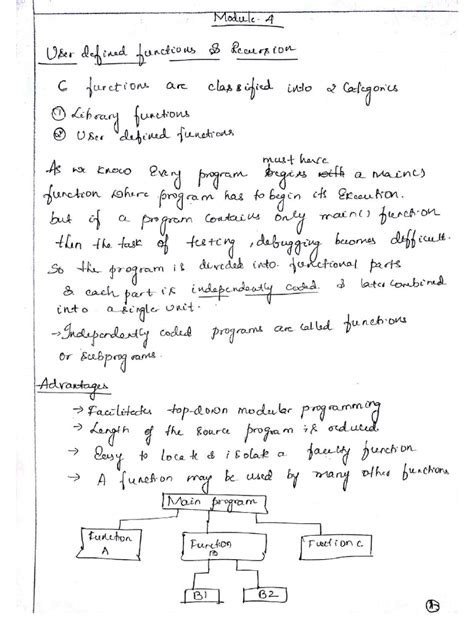 Module-4
User defined functions & Recursion
C functions are classified into 2 Categories
① Library functions
② User defined functions
must have
As we know Every program begins with a main()
function where program has to begin its Execution.
but if a program contains only main() function
then the task of testing, debugging becomes difficult.
So the program is divided into functional parts
& each part is independently coded & later combined
into a single unit.
→ Independently coded programs are called functions
or subprograms.
Advantages
→ Facilitates top-down modular programming
→ Length of the source program is reduced
→ Easy to locate & isolate a faulty function
→ A function may be used by many other functions
Main program
Function A
Function B
Function C
B1
B2